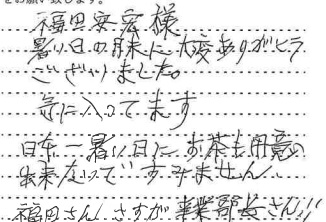 をお願い致します。
福田安宏様
暑い日の中 大変ありがとう
ございました。
気に入ってます
日本一暑い日に お茶も用意の
出来なくって すみません
福田さん さすが 事業部長さん!!